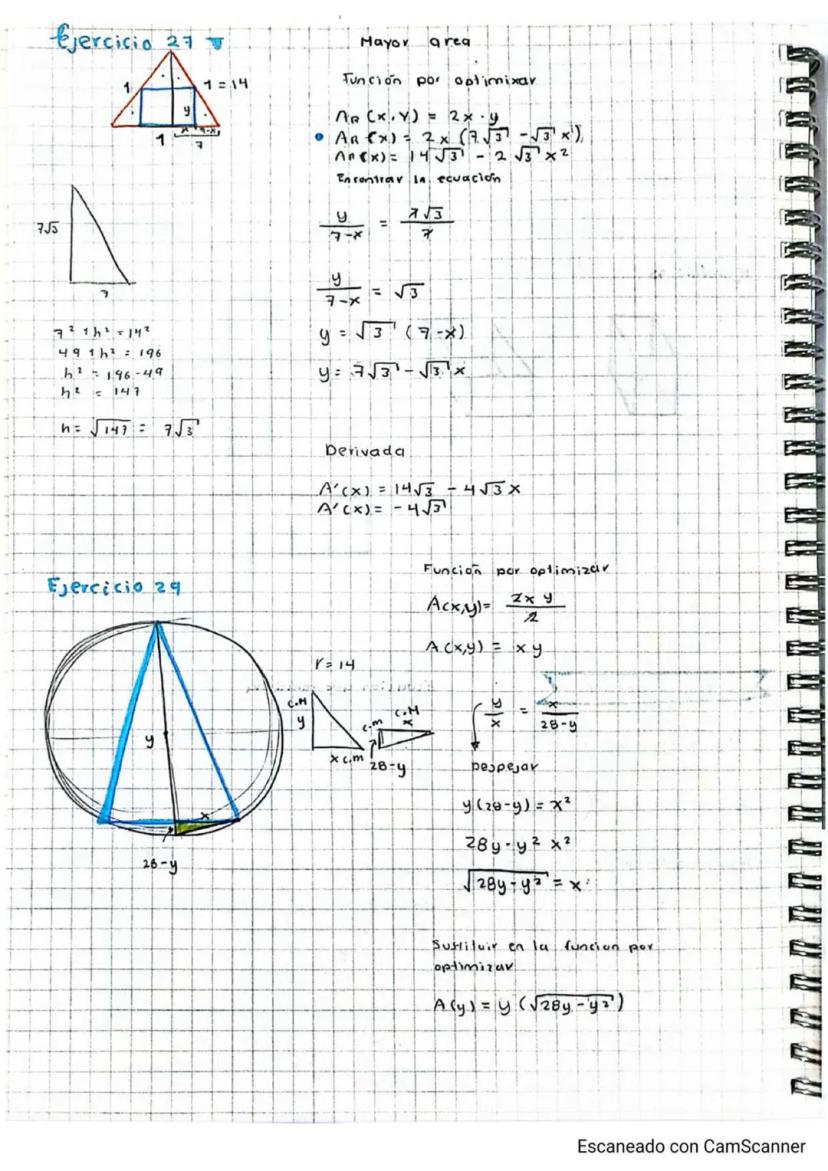 Ejercicio 27
1
1 = 14
y
x
7-x
1
7
7√3
7
7² + h² = 14²
49 + h² = 196
h² = 196-49
h² = 147
h = √147 = 7√3
Mayor area
Función por optimizar
AR (x,y) = 2x · y
AR (x) = 2x (7√3 - √3 x)
AR (x) = 14√3 - 2√3 x²
Encontrar la ecuación
y / 7-x = 7√3 / 7
y / 7-x = √3
y = √3 (7-x)
y = 7√3 - √3 x
Derivada
A'(x) = 14√3 - 4√3 x
A'(x) = -4√3
Ejercicio 29
y
x
28-y
r = 14
C.M
y
x c.m
C.M
x
c.m
28-y
Función por optimizar
A(x,y) = 2x y / 2
A(x,y) = xy
y / x = x / 28-y
Despejar
y(28-y) = x²
28y - y² x²
√28y-y² = x
Sustituir en la funcion por
optimizar
A(y) = y (√28y - y²)
Escaneado con CamScanner